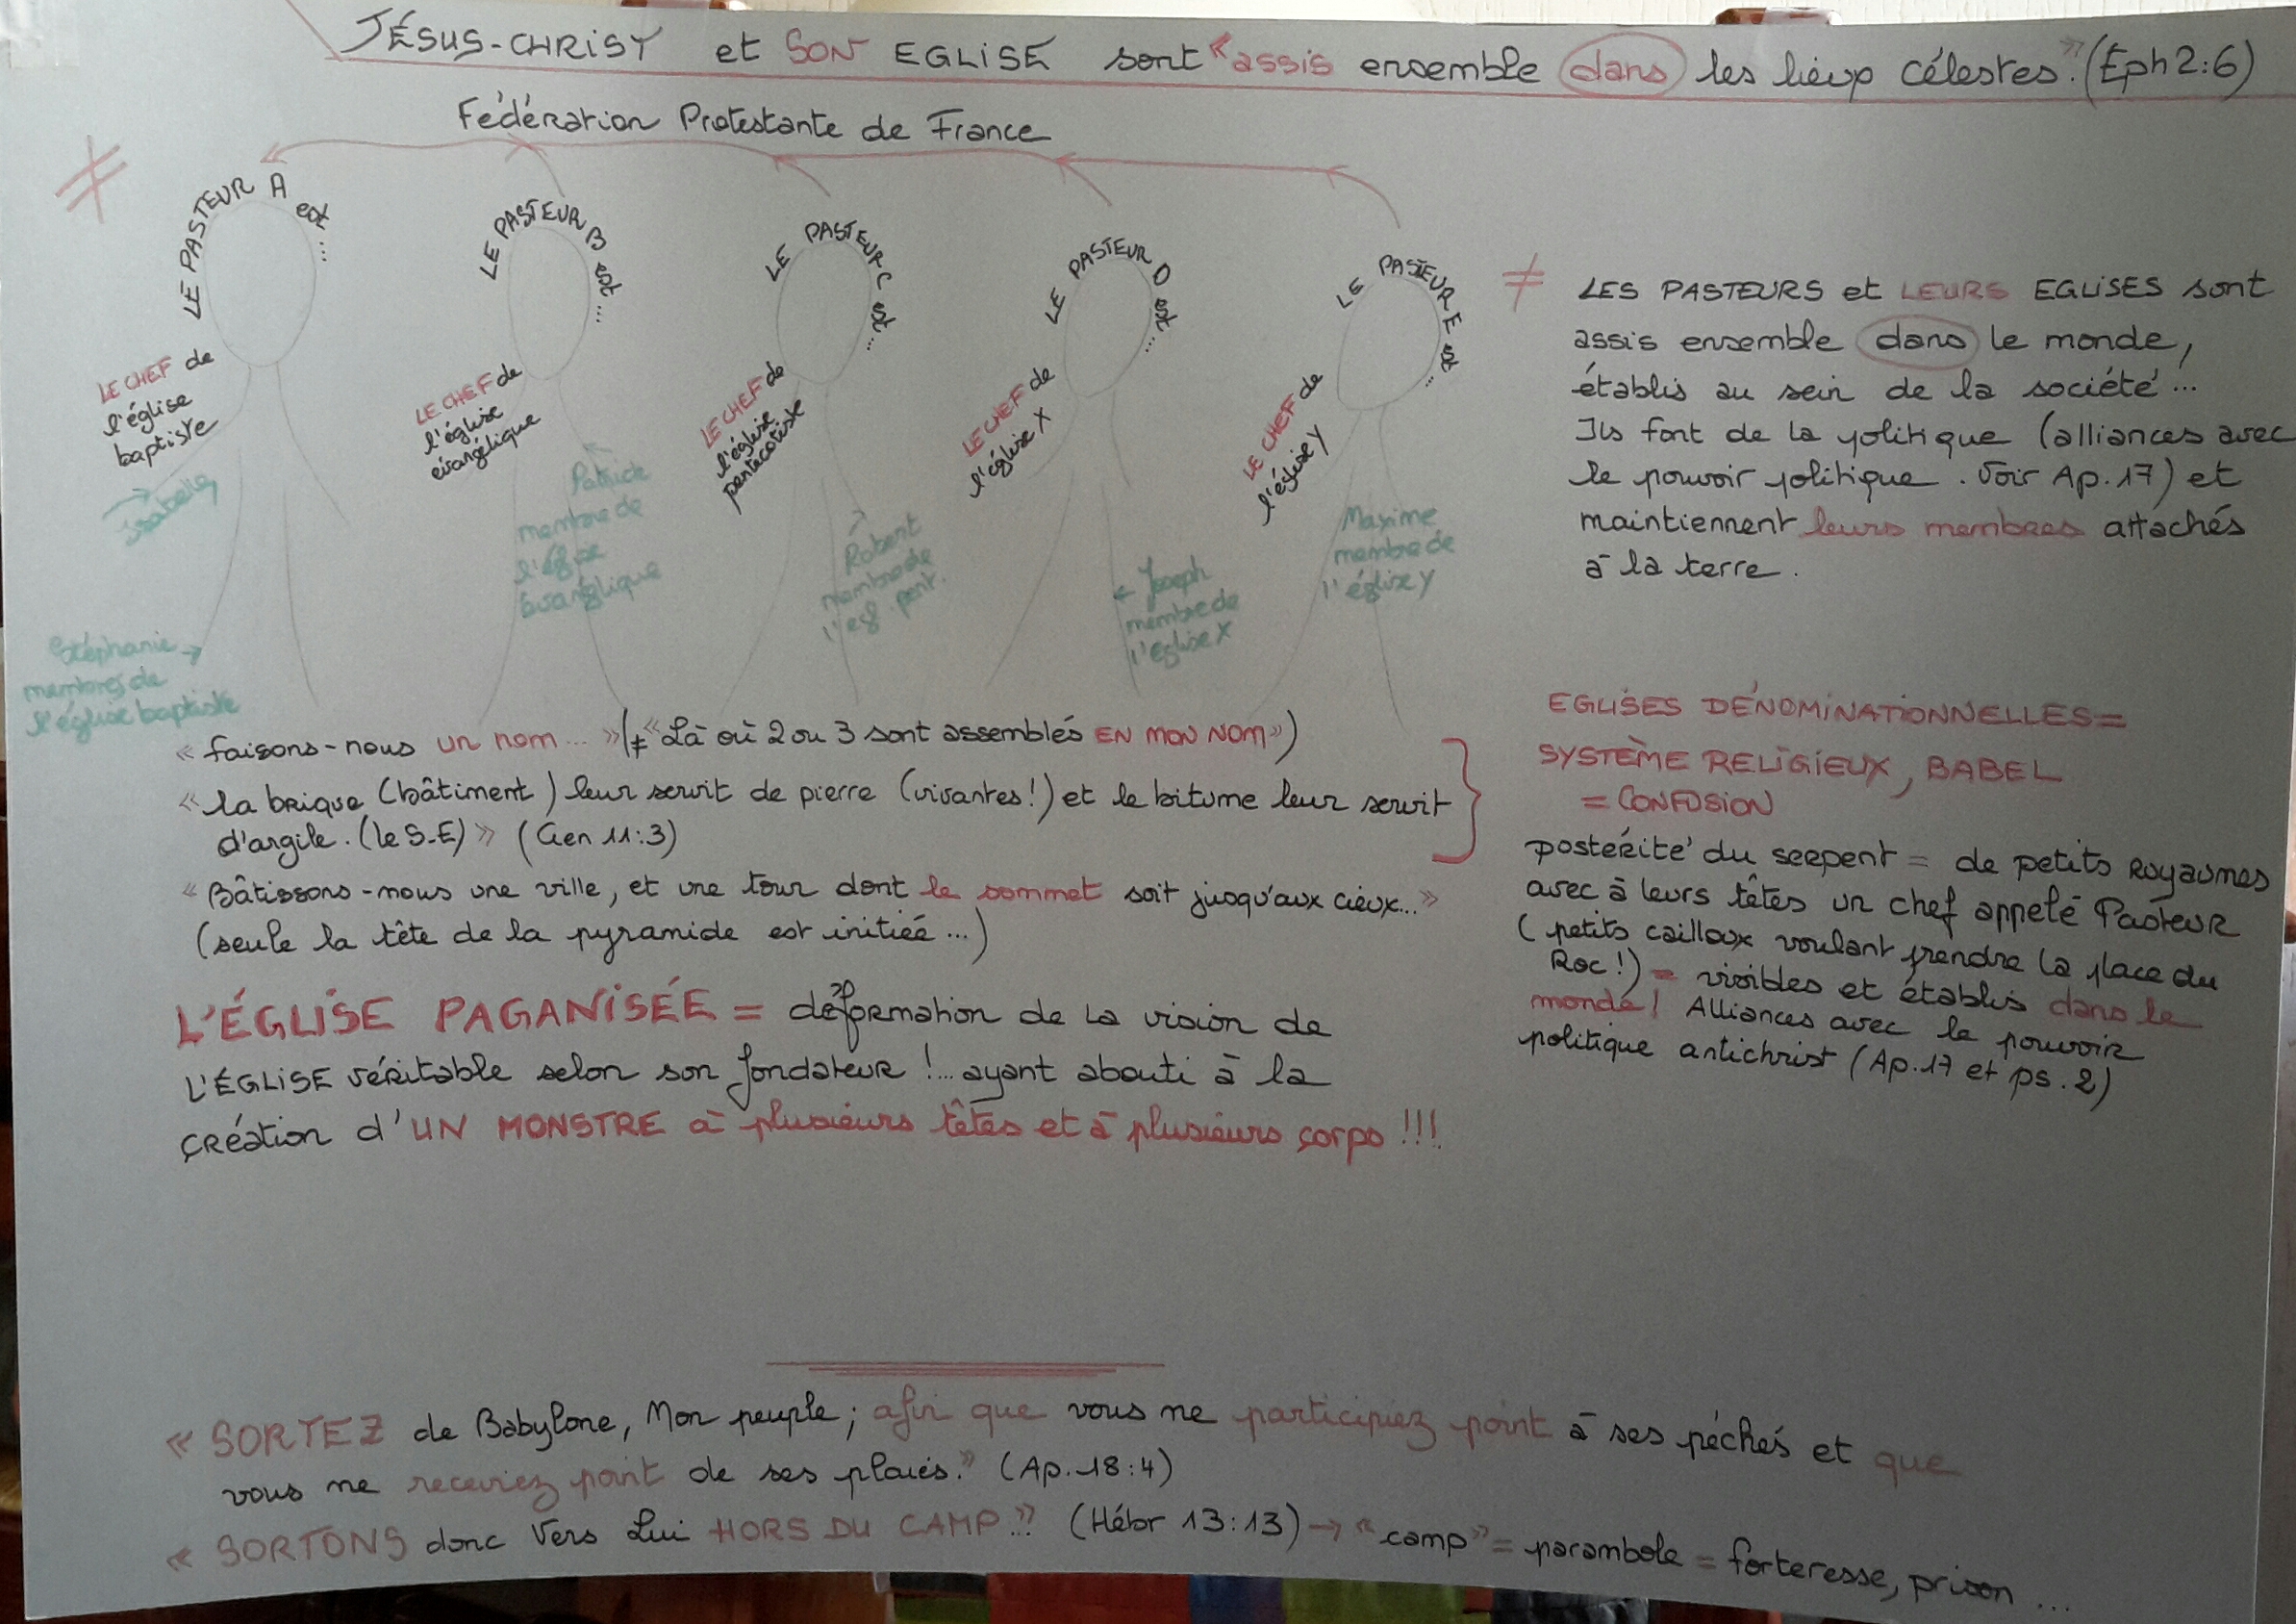 JÉSUS-CHRIST et SON EGLISE sont «assis ensemble dans les lieux célestes». (Eph 2:6)
Fédération Protestante de France
≠
LE PASTEUR A est ...
LE CHEF de
l'église
baptiste
Isabelle
Stéphanie →
membres de
l'église baptiste
LE PASTEUR B est ...
LE CHEF de
l'église
évangélique
Patricia
membre de
l'église
évangélique
LE PASTEUR C est ...
LE CHEF de
l'église
pentecôtiste
Robert
membre de
l'égl. pent.
LE PASTEUR D est ...
LE CHEF de
l'église X
← Joseph
membre de
l'église X
LE PASTEUR E est ...
LE CHEF de
l'église Y
Maxime
membre de
l'église Y
≠ LES PASTEURS et LEURS EGLISES sont
assis ensemble dans le monde,
établis au sein de la société...
Ils font de la politique (alliances avec
le pouvoir politique. Voir Ap. 17) et
maintiennent leurs membres attachés
à la terre.
« faisons-nous un nom... » (≠ «Là où 2 ou 3 sont assemblés EN MON NOM»)
« la brique (bâtiment) leur servit de pierre (vivantes!) et le bitume leur servit
d'argile. (le S-E) » (Gen 11:3)
« Bâtissons-nous une ville, et une tour dont le sommet soit jusqu'aux cieux... »
(seule la tête de la pyramide est initiée ...)
L'ÉGLISE PAGANISÉE = déformation de la vision de
L'ÉGLISE véritable selon son fondateur !... ayant abouti à la
création d'UN MONSTRE à plusieurs têtes et à plusieurs corps !!!
EGLISES DÉNOMINATIONNELLES =
SYSTÈME RELIGIEUX, BABEL
= CONFUSION
postérité du serpent = de petits royaumes
avec à leurs têtes un chef appelé Pasteur
(petits cailloux voulant prendre la place du
Roc!) = visibles et établis dans le
monde! Alliances avec le pouvoir
politique antichrist (Ap. 17 et ps. 2)
« SORTEZ de Babylone, Mon peuple; afin que vous ne participiez point à ses péchés et que
vous ne receviez point de ses plaies.» (Ap. 18:4)
« SORTONS donc vers Lui HORS DU CAMP...» (Hébr 13:13) → «camp» = parambole = forteresse, prison ...